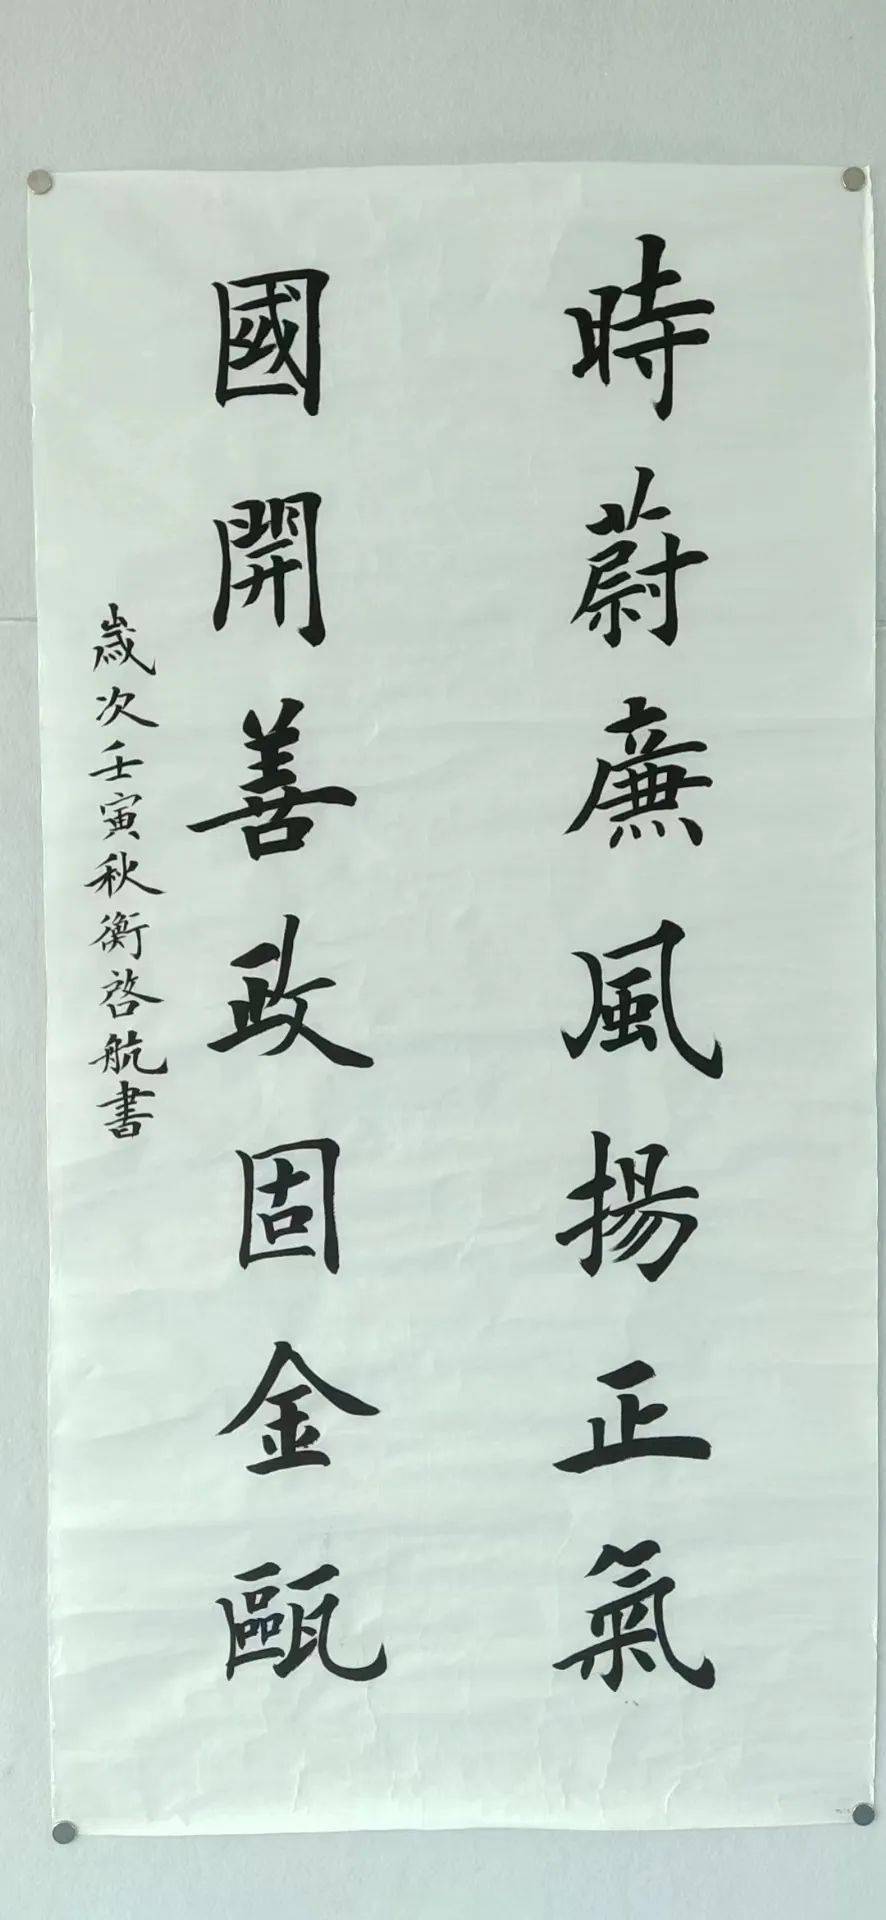 時蔚廉風揚正氣
國開善政固金甌
歲次壬寅秋衡啓航書